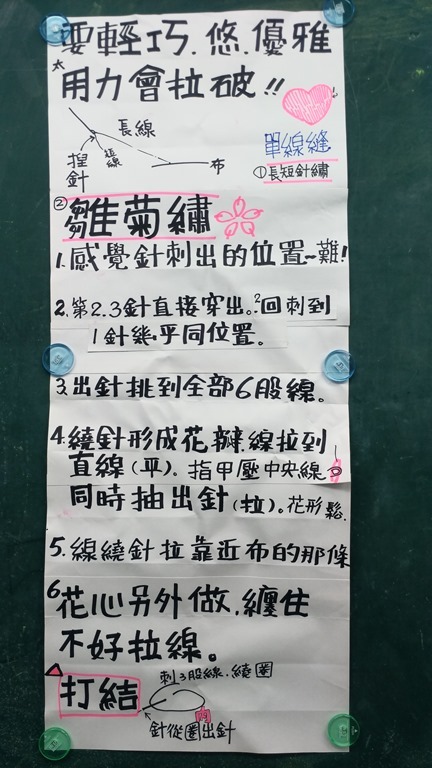 要輕巧.悠.優雅
太用力會拉破!!
長線
短線
捏針
布
單線縫
①長短針繡
②雛菊繡
1.感覺針刺出的位置~難!
2.第2.3針直接穿出。²回刺到
1針幾.乎同位置。
3.出針挑到全部6股線。
4.繞針形成花瓣.線拉到
直線(平)。指甲壓中央線
同時抽出針(拉)。花形鬆.
5.線繞針拉靠近布的那條
6.花心另外做.纏住
不好拉線。
刺3股線.繞圈
打結
內
針從圈出針